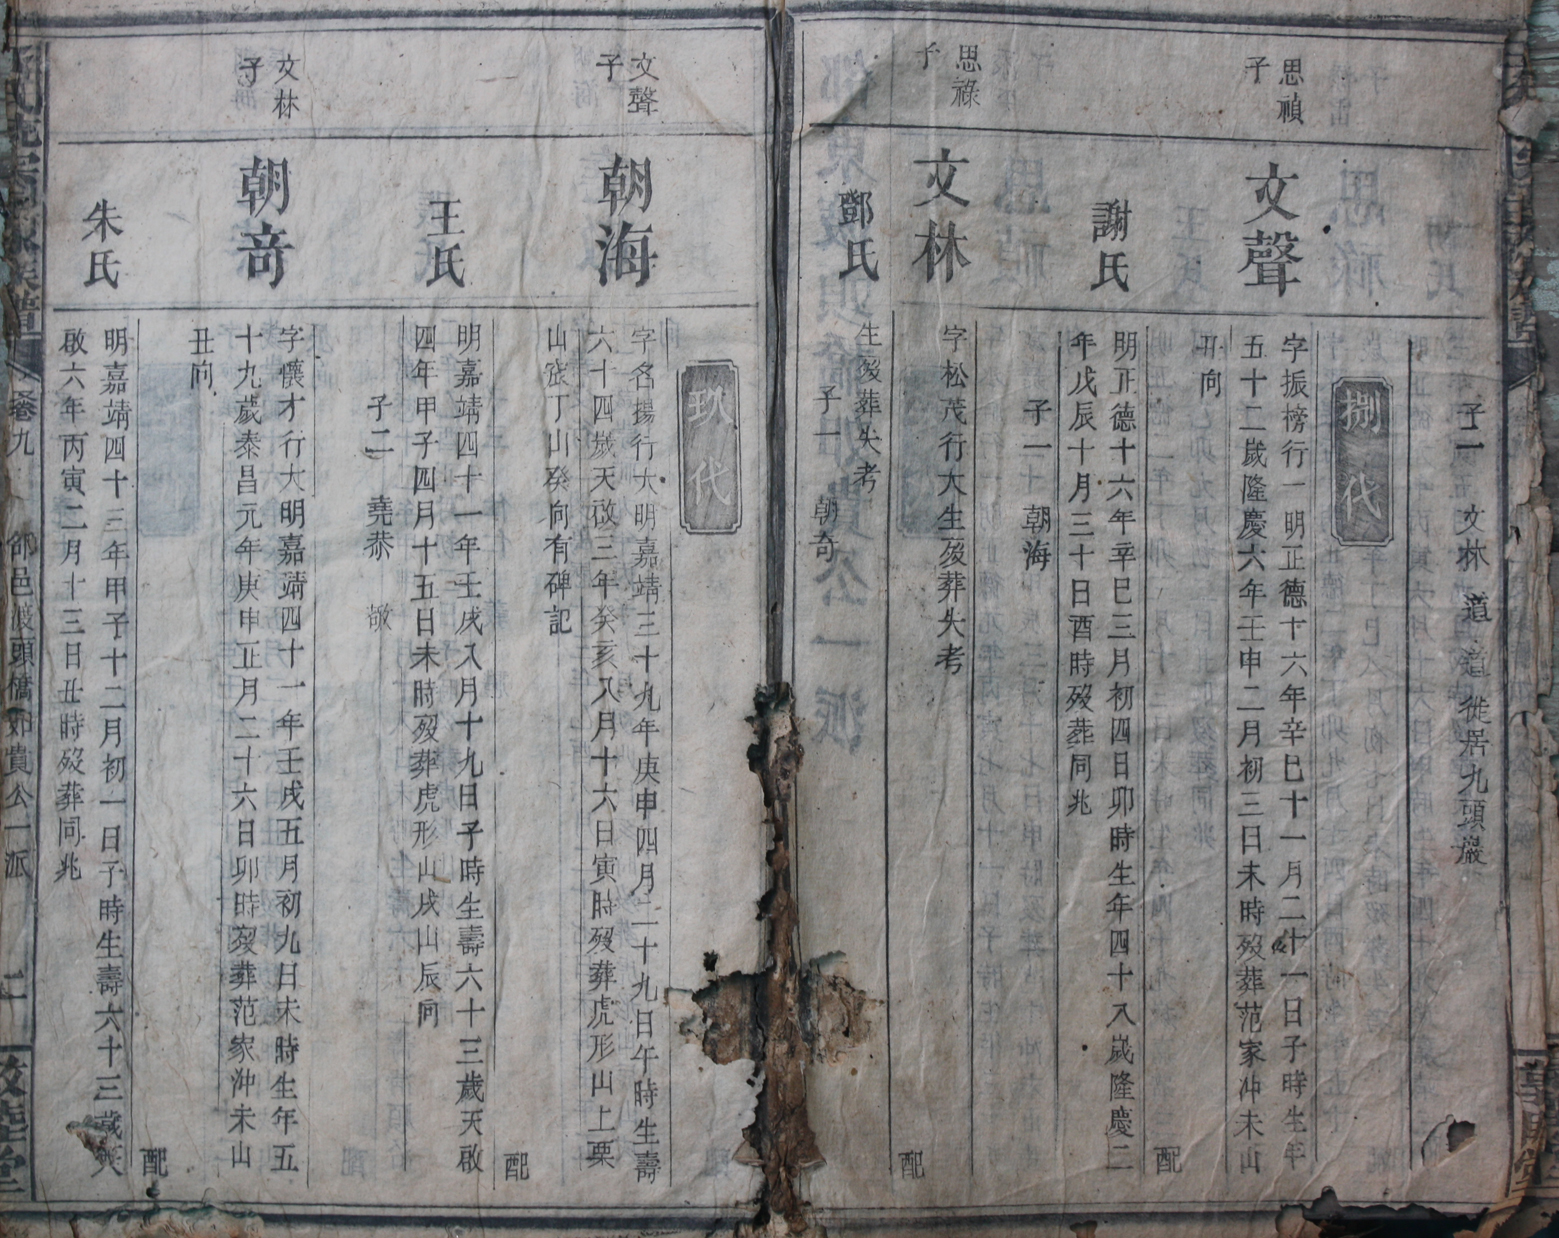 子二 文林 道 道 從居九頭巖
捌代
思禎
子
文聲
字振榜行一明正德十六年辛巳十一月二十一日子時生年
五十二歲隆慶六年壬申二月初三日未時歿葬范家沖未山
丑向
配
謝氏
明正德十六年辛巳三月初四日卯時生年四十八歲隆慶二
年戊辰十月三十日酉時歿葬同兆
子一 朝海
思祿
子
文林
字松茂行大生歿葬失考
配
鄧氏
生歿葬失考
子一 朝奇
玖代
文聲
子
朝海
字名揚行大明嘉靖三十九年庚申四月二十九日午時生壽
六十四歲天啟三年癸亥八月十六日寅時歿葬虎形山上栗
山嵌丁山癸向有碑記
配
王氏
明嘉靖四十一年壬戌八月十九日子時生壽六十三歲天啟
四年甲子四月十五日未時歿葬虎形山戌山辰向
子二 堯恭 敬
文林
子
朝奇
字懷才行大明嘉靖四十一年壬戌五月初九日未時生年五
十九歲泰昌元年庚申正月二十六日卯時歿葬范家沖未山
丑向
配
朱氏
明嘉靖四十三年甲子十二月初一日子時生壽六十三歲天
啟六年丙寅二月十三日丑時歿葬同兆
卷九 邵邑 頭 如貴公一派 二